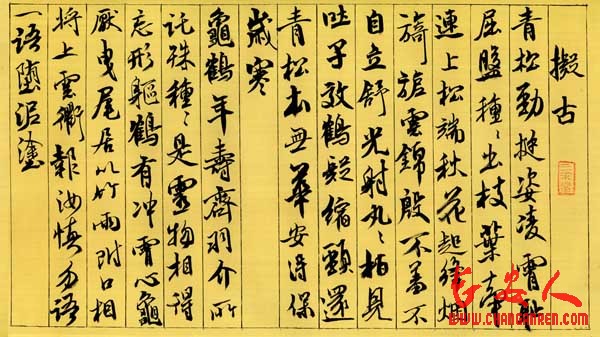 擬古
青松勁挺姿凌霄恥
屈盤種〻出枝葉牽
連上松端秋花起絳烟
旖旎雲錦殷不羞不
自立舒光射丸〻柏見
吐子效鶴疑縮頸還
青松本無華安得保
歲寒
龜鶴年壽齊羽介所
託殊種〻是靈物相得
忘形軀鶴有冲霄心龜
厭曳尾居以竹兩附口相
將上雲衢報汝慎勿語
一語墮泥塗
长安人
WWW.CHANGANREN.COM